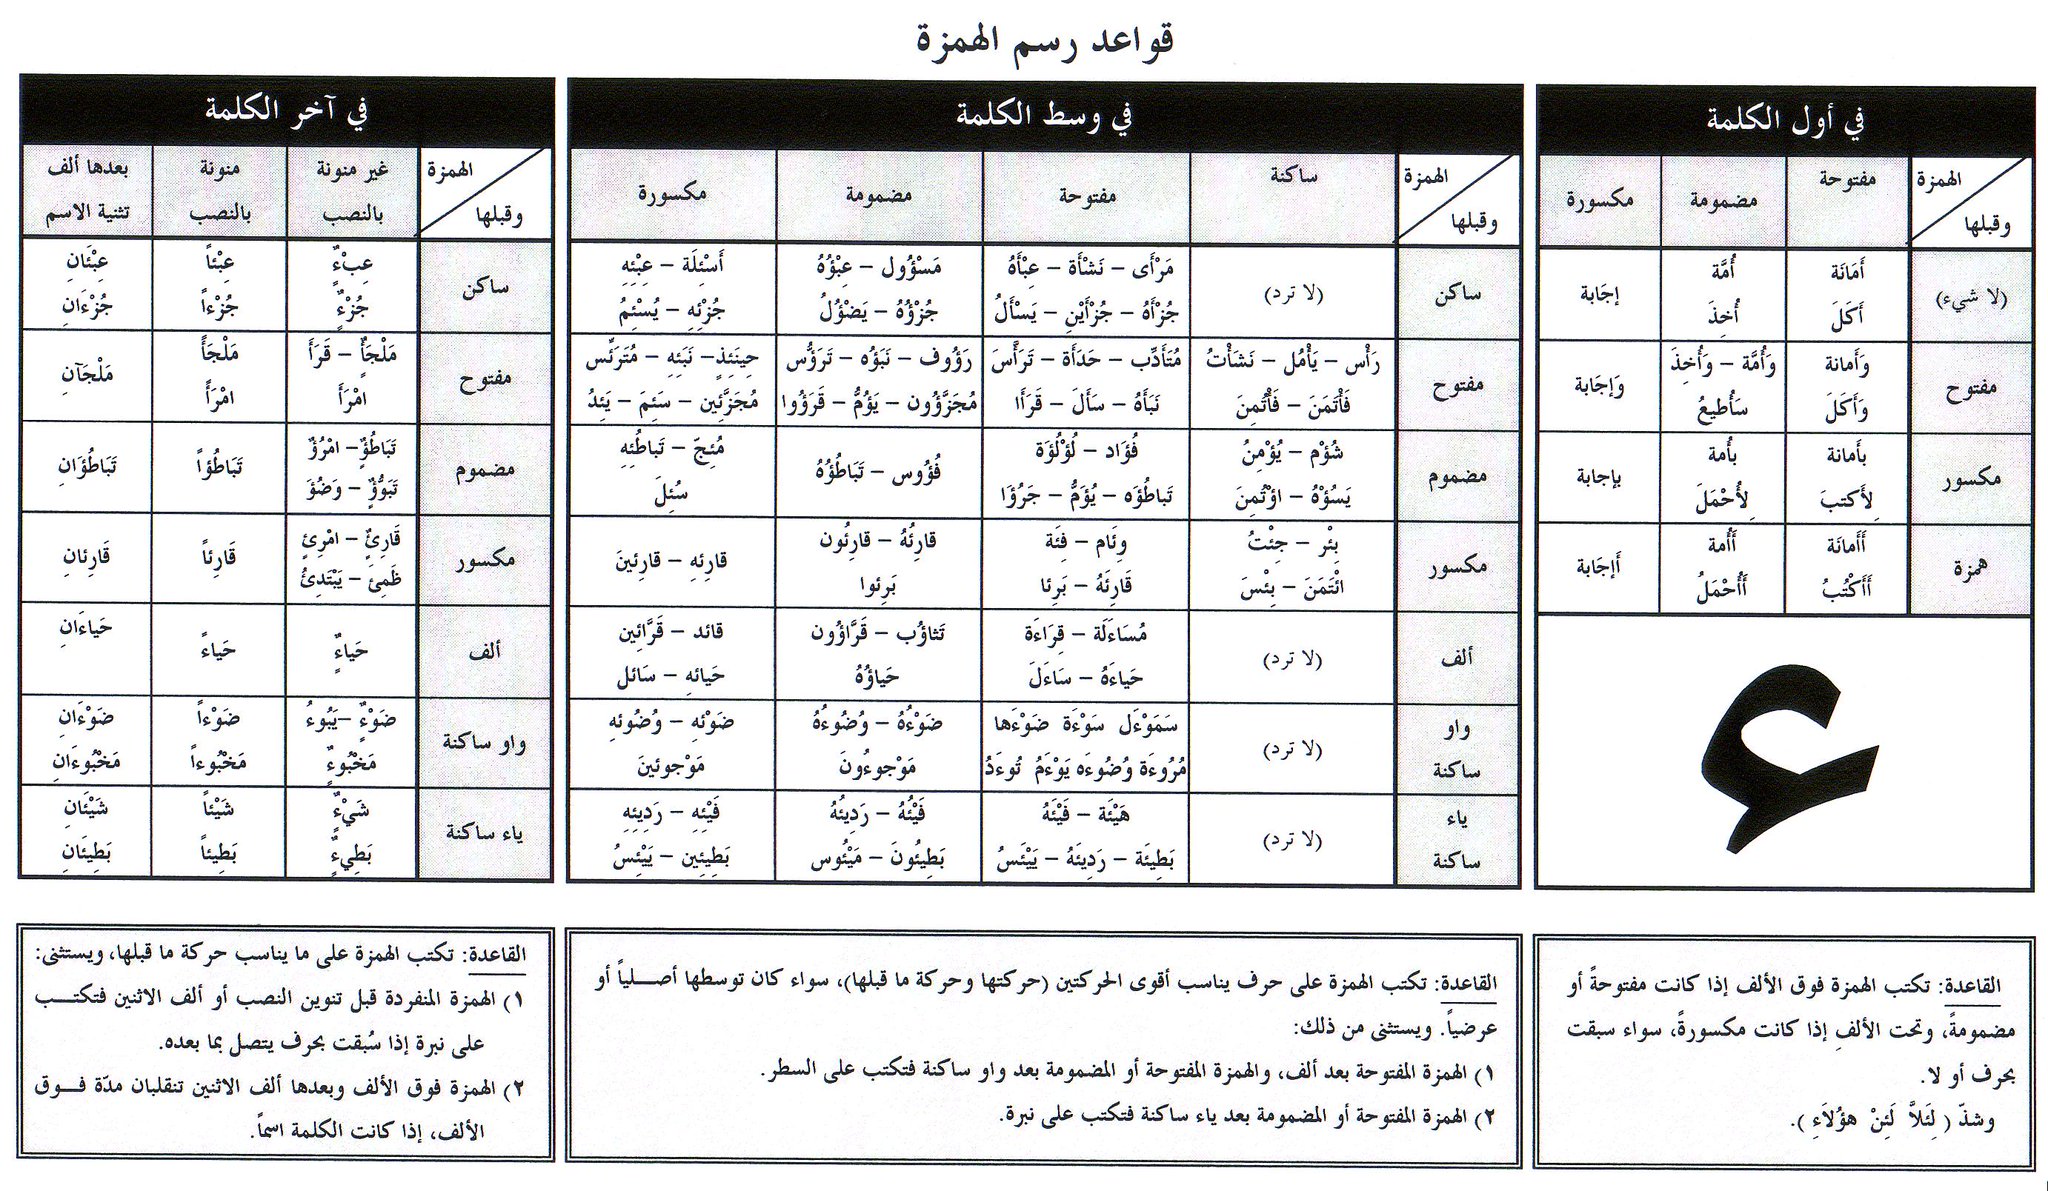 قواعد رسم الهمزة
في أول الكلمة
الهمزة
وقبلها
مفتوحة
مضمومة
مكسورة
(لا شيء)
أَمَانَة
أَكَلَ
أُمَّة
أُخِذَ
إجَابة
مفتوح
وَأَمانة
وَأَكَلَ
وَأُمَّة – وَأُخِذَ
سَأُطيعُ
وَإجَابة
مكسور
بأَمانة
لِأَكتبَ
بأُمة
لِأُحْمَلَ
بإجابة
همزة
أَأَمانَة
أَأَكْتُبُ
أَأُمة
أَأُحْمَلُ
أَإجَابة
ء
القاعدة: تكتب الهمزة فوق الألف إذا كانت مفتوحةً أو
مضمومةً، وتحت الألفِ إذا كانت مكسورةً، سواء سبقت
بحرف أو لا.
وشذّ ( لِئَلاَّ لَئِنْ هؤُلاَءِ ).
في وسط الكلمة
الهمزة
وقبلها
ساكنة
مفتوحة
مضمومة
مكسورة
ساكن
(لا ترد)
مَرْأَى – نَشْأَة – عِبْأَهُ
جُزْأَهُ – جُزْأَيْنِ – يَسْأَلُ
مَسْؤُول – عِبْؤُهُ
جُزْؤُهُ – يَضْؤُلُ
أَسْئِلَة – عِبْئِهِ
جُزْئِهِ – يُسْئِمُ
مفتوح
رَأْس – يَأْمُل – نَشَأْتُ
فَأْتَمَنَ – فَأْتُمِنَ
مُتَأَدِّب – حَدَأَة – تَرَأَّسَ
نَبَأَهُ – سَأَلَ – قَرَأَا
رَؤُوف – نَبَؤُه – تَرَؤُّس
مُجَزَّؤُون – يَؤُمُّ – قَرَؤُوا
حِينَئِذٍ – نَبَئِهِ – مُتَرَئِّس
مُجَزَّئِين – سَئِمَ – يَئِدُ
مضموم
شُؤْم – يُؤْمنُ
يَسُؤْهُ – اؤْتُمِنَ
فُؤَاد – لُؤْلُؤَة
تَباطُؤَه – يُؤَمُّ – جَرُؤَا
فُؤُوس – تَبَاطُؤُهُ
مُئِجّ – تَباطُئِهِ
سُئِلَ
مكسور
بِئْر – جِئْتُ
ائْتَمَنَ – بِئْسَ
وِئَام – فِئَة
قَارِئَهُ – بَرِئا
قارِئُهُ – قارِئُون
بَرِئوا
قارِئهِ – قارِئينَ
ألف
(لا ترد)
مُسَاءَلَة – قِرَاءَة
حَياءَهُ – سَاءَلَ
تَثاؤُب – قَرَّاؤُون
حَياؤُهُ
قائد – قَرَّائِين
حَيائهِ – سَائل
واو
ساكنة
(لا ترد)
سَمَوْءَل سَوْءَة ضَوْءَها
مُرُوءَة وُضُوءَه يَوْءَمُ تُوءَدُ
ضَوْءُهُ – وُضُوءُهُ
مَوْجوءُونَ
ضَوْئهِ – وُضُوئهِ
مَوْجوئينَ
ياء
ساكنة
(لا ترد)
هَيْئَة – فَيْئَهُ
بَطِيئَة – رَدِيئَهُ – يَيْئَسُ
فَيْئُهُ – رَدِيئُهُ
بَطِيئُونَ – مَيْئُوس
فَيْئِهِ – رَدِيئِهِ
بَطِيئِين – يَيْئِسُ
القاعدة: تكتب الهمزة على حرف يناسب أقوى الحركتين (حركتها وحركة ما قبلها)، سواء كان توسطها أصـلياً أو
عرضياً. ويستثنى من ذلك:
١) الهمزة المفتوحة بعد ألف، والهمزة المفتوحة أو المضمومة بعد واو ساكنة فتكتب على السطر.
٢) الهمزة المفتوحة أو المضمومة بعد ياء ساكنة فتكتب على نبرة.
في آخر الكلمة
الهمزة
وقبلها
غير منونة
بالنصب
منونة
بالنصب
بعدها ألف
تثنية الاسم
ساكن
عِبْءٌ
جُزْءٌ
عِبْئاً
جُزْءاً
عِبْئَانِ
جُزْءَانِ
مفتوح
مَلْجَأٌ – قَرَأَ
امْرَأَ
مَلْجَأً
امْرَأً
مَلْجَآنِ
مضموم
تَبَاطُؤٌ– امْرُؤٌ
تَبَوُّؤٌ – وَضُؤَ
تَبَاطُؤاً
تَبَاطُؤَانِ
مكسور
قَارِئٌ – امْرِئٍ
ظَمِئَ – يَبْتَدِئُ
قَارِئاً
قَارِئانِ
ألف
حَياءٌ
حَياءً
حَياءَانِ
واو ساكنة
ضَوْءٌ –يَبُوءُ
مَخْبُوءٌ
ضَوْءاً
مَخْبُوءاً
ضَوْءَانِ
مَخْبُوءَانِ
ياء ساكنة
شَيْءٌ
بَطِيءٌ
شَيْئاً
بَطِيئاً
شَيْئَانِ
بَطِيئَانِ
القاعدة: تكتب الهمزة على ما يناسب حركة ما قبلها، ويستثنى:
١) الهمزة المنفردة قبل تنوين النصب أو ألف الاثنين فتكتـــب
على نبرة إذا سُبقت بحرف يتصل بما بعده.
٢) الهمزة فوق الألف وبعدها ألف الاثنين تنقلبان مدّة فـــوق
الألف، إذا كانت الكلمة اسماً.